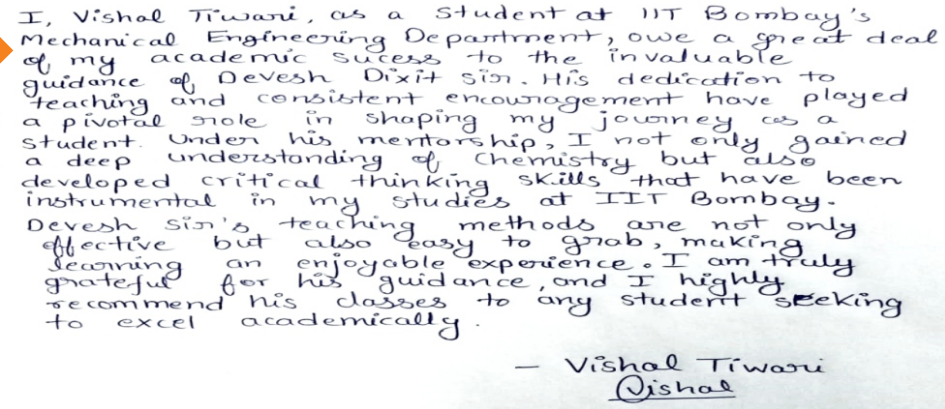 I, Vishal Tiwari, as a student at IIT Bombay's
Mechanical Engineering Department, owe a great deal
of my academic sucess to the invaluable
guidance of Devesh Dixit sir. His dedication to
teaching and consistent encouragement have played
a pivotal role in shaping my journey as a
student. Under his mentorship, I not only gained
a deep understanding of Chemistry but also
developed critical thinking skills that have been
instrumental in my studies at IIT Bombay.
Devesh Sir's teaching methods are not only
effective but also easy to grab, making
learning an enjoyable experience. I am truly
grateful for his guidance, and I highly
recommend his classes to any student seeking
to excel academically.
— Vishal Tiwari
Vishal